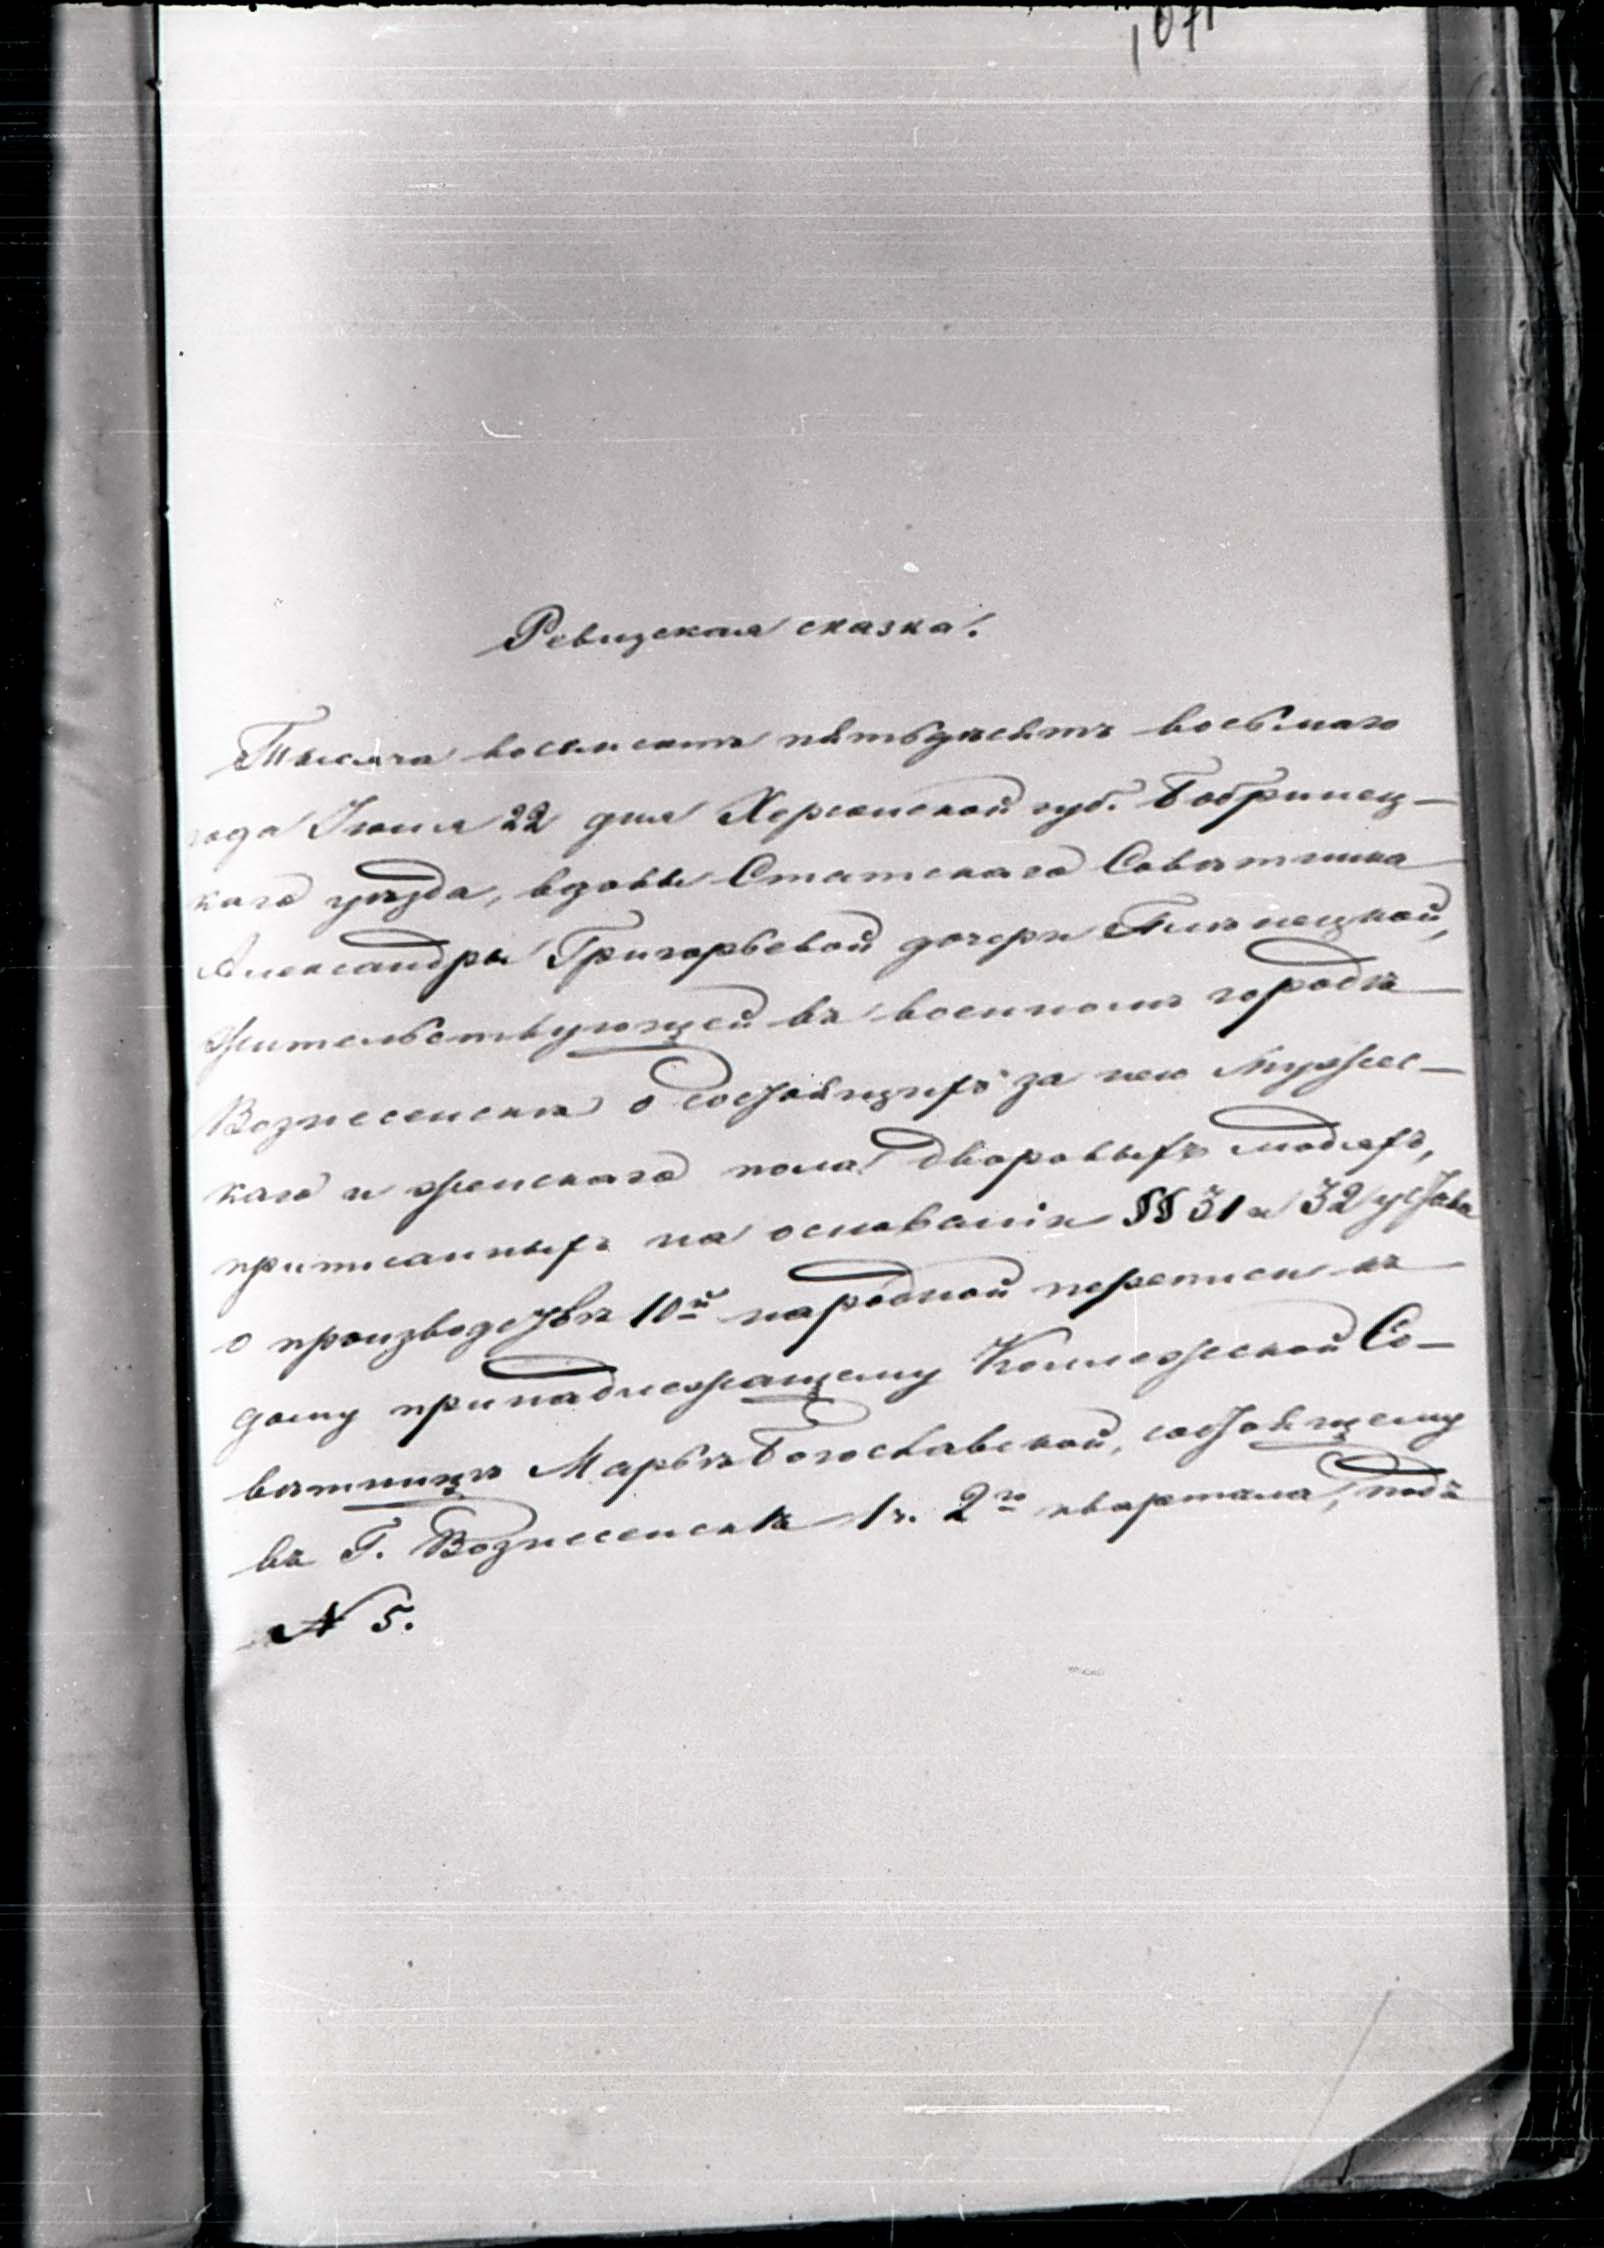 1071
Ревизская сказка.
Тысяча восемьсотъ пятьдесятъ восьмаго
года Іюня 22 дня Херсонской губ. Бобринец-
каго уѣзда, вдовы Статскаго Совѣтника
Александры Григорьевой дочери
жительствующей въ военномъ городѣ
Вознесенскѣ о состоящихъ за нею мужес-
каго и женскаго пола дворовыхъ людяхъ,
приписанныхъ на основаніи §§ 31 и 32 устава
о производствѣ 10й народной переписи къ
дому принадлежащему Коллежской Со-
вѣтницѣ Марьѣ Богославской, состоящему
въ Г. Вознесенскѣ 1 ч. 2го квартала, подъ
№ 5.